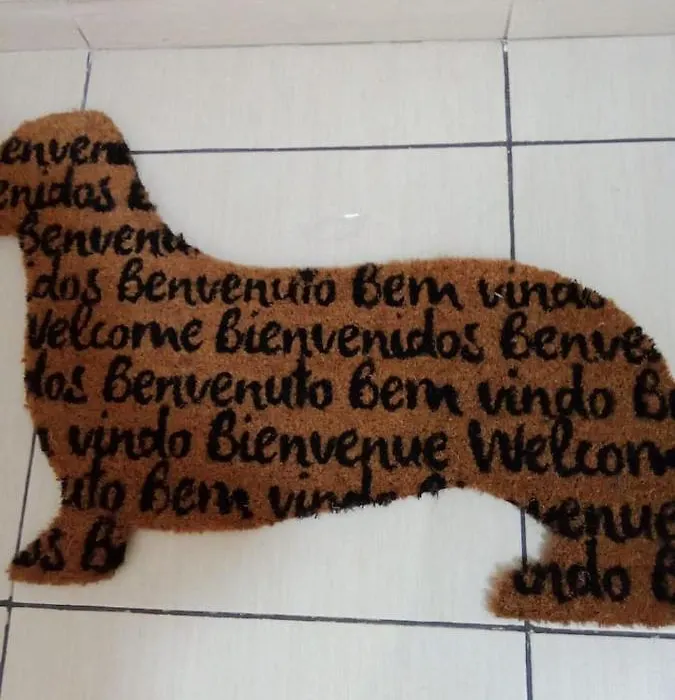 enven
enidos B
Benvenu
dos Benvenuto Bem vindo
Welcome Bienvenidos Benve
dos Benvenuto Bem vindo B
vindo Bienvenue Welcom
uto Bem vindo
venue
os B
indo B